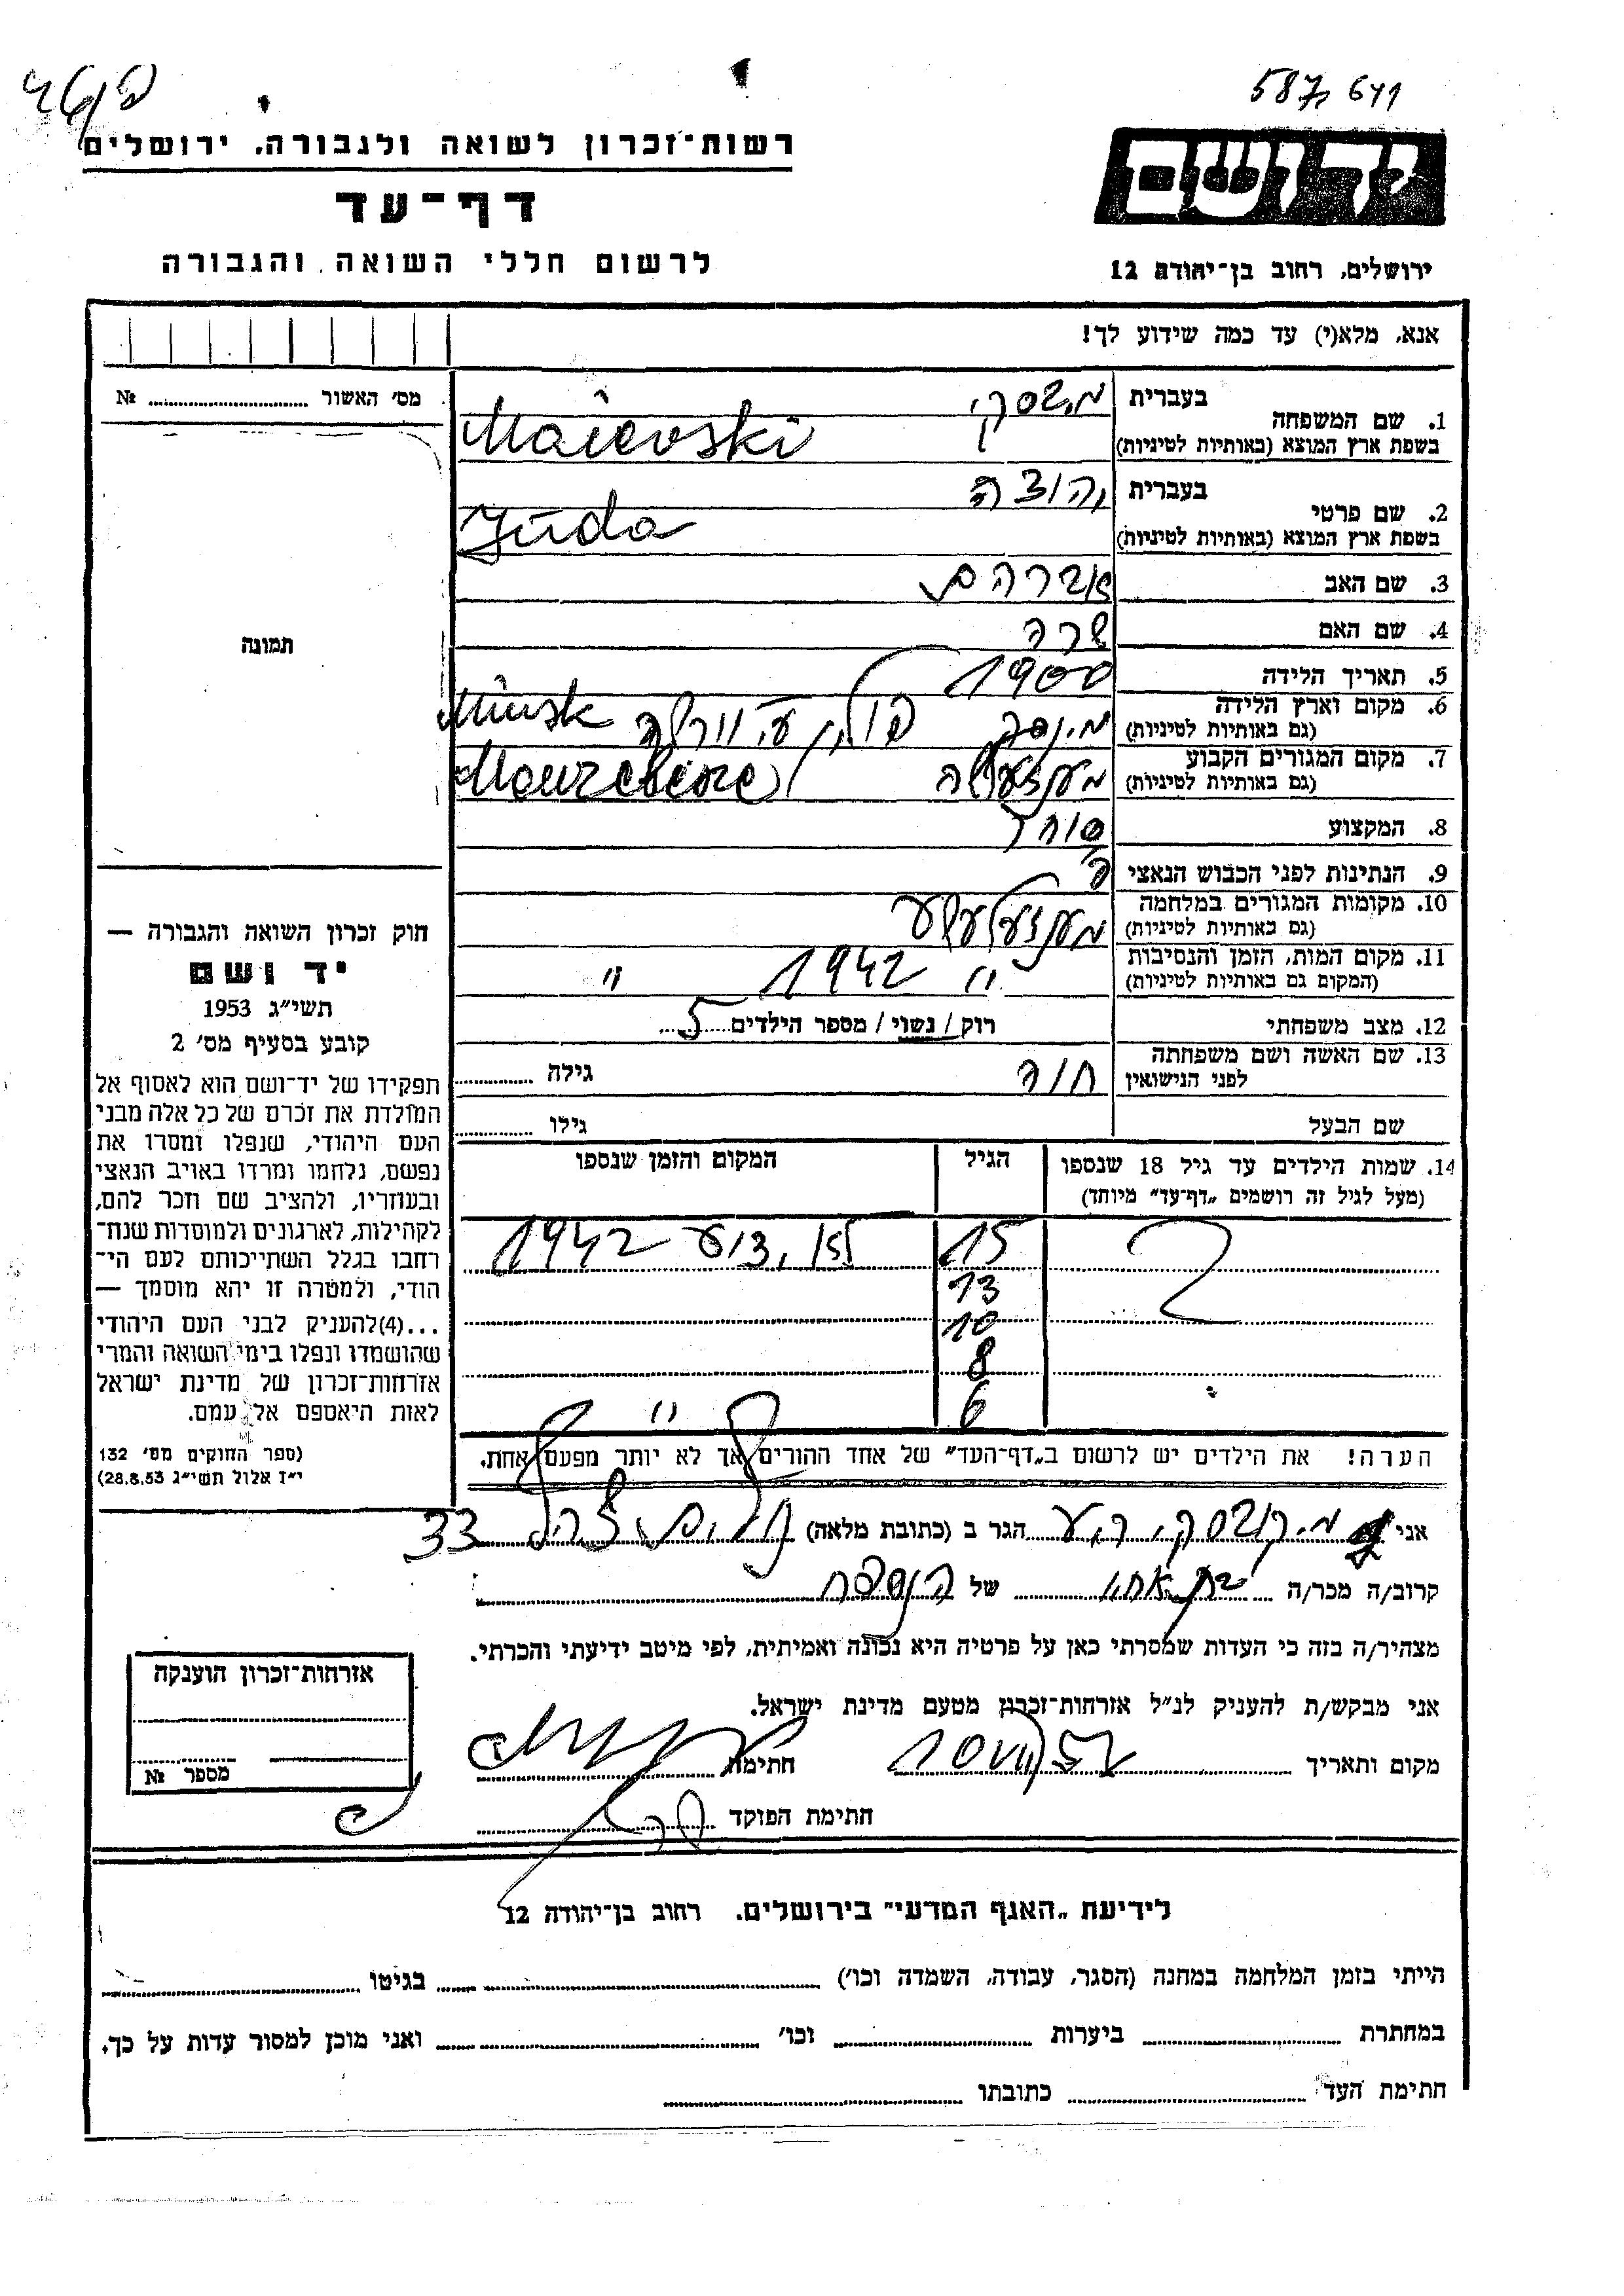 587, 641
רשות־זכרון לשואה ולגבורה, ירושלים
יד ושם
דף־עד
לרשום חללי השואה והגבורה
ירושלים, רחוב בן־יהודה 12
אנא, מלא(י) עד כמה שידוע לך!
מס׳ האשור № 
1. שם המשפחה
בעברית
בשפת ארץ המוצא (באותיות לטיניות) Maievski
2. שם פרטי
בעברית יהודה
בשפת ארץ המוצא (באותיות לטיניות) Juda
3. שם האב אברהם
4. שם האם שרה
תמונה
5. תאריך הלידה 1900
6. מקום וארץ הלידה
(גם באותיות לטיניות) מינסק Minsk
7. מקום המגורים הקבוע
(גם באותיות לטיניות)
8. המקצוע סוחר
9. הנתינות לפני הכבוש הנאצי
10. מקומות המגורים במלחמה
(גם באותיות לטיניות)
11. מקום המות, הזמן והנסיבות
(המקום גם באותיות לטיניות) " 1942 "
12. מצב משפחתי רוק / נשוי / מספר הילדים 5
13. שם האשה ושם משפחתה
לפני הנישואין חוה גילה
שם הבעל גילו
14. שמות הילדים עד גיל 18 שנספו
(מעל לגיל זה רושמים „דף־עד״ מיוחד)
הגיל
המקום והזמן שנספו
15 1942
13
10
8
6 "
הערה! את הילדים יש לרשום ב„דף־העד״ של אחד ההורים אך לא יותר מפעם אחת.
חוק זכרון השואה והגבורה —
יד ושם
תשי״ג 1953
קובע בסעיף מס׳ 2
תפקידו של יד־ושם הוא לאסוף אל
המולדת את זכרם של כל אלה מבני
העם היהודי, שנפלו ומסרו את
נפשם, נלחמו ומרדו באויב הנאצי
ובעוזריו, ולהציב שם וזכר להם,
לקהילות, לארגונים ולמוסדות שנח־
רחבו בגלל השתייכותם לעם הי־
הודי, ולמטרה זו יהא מוסמך —
...(4)להעניק לבני העם היהודי
שהושמדו ונפלו בימי השואה והמרי
אזרחות־זכרון של מדינת ישראל
לאות היאספם אל עמם.
(ספר החוקים מס׳ 132
י״ז אלול תשי״ג 28.8.53)
אני הגר ב (כתובת מלאה) 33
קרוב/ה מכר/ה של הנספה
מצהיר/ה בזה כי העדות שמסרתי כאן על פרטיה היא נכונה ואמיתית, לפי מיטב ידיעתי והכרתי.
אני מבקש/ת להעניק לנ״ל אזרחות־זכרון מטעם מדינת ישראל.
מקום ותאריך חתימה
חתימת הפוקד
אזרחות־זכרון הוענקה
מספר №
לידיעת „האגף המדעי״ בירושלים. רחוב בן־יהודה 12
הייתי בזמן המלחמה במחנה (הסגר, עבודה, השמדה וכו׳) בגיטו
במחתרת ביערות וכו׳ ואני מוכן למסור עדות על כך.
חתימת העד כתובתו